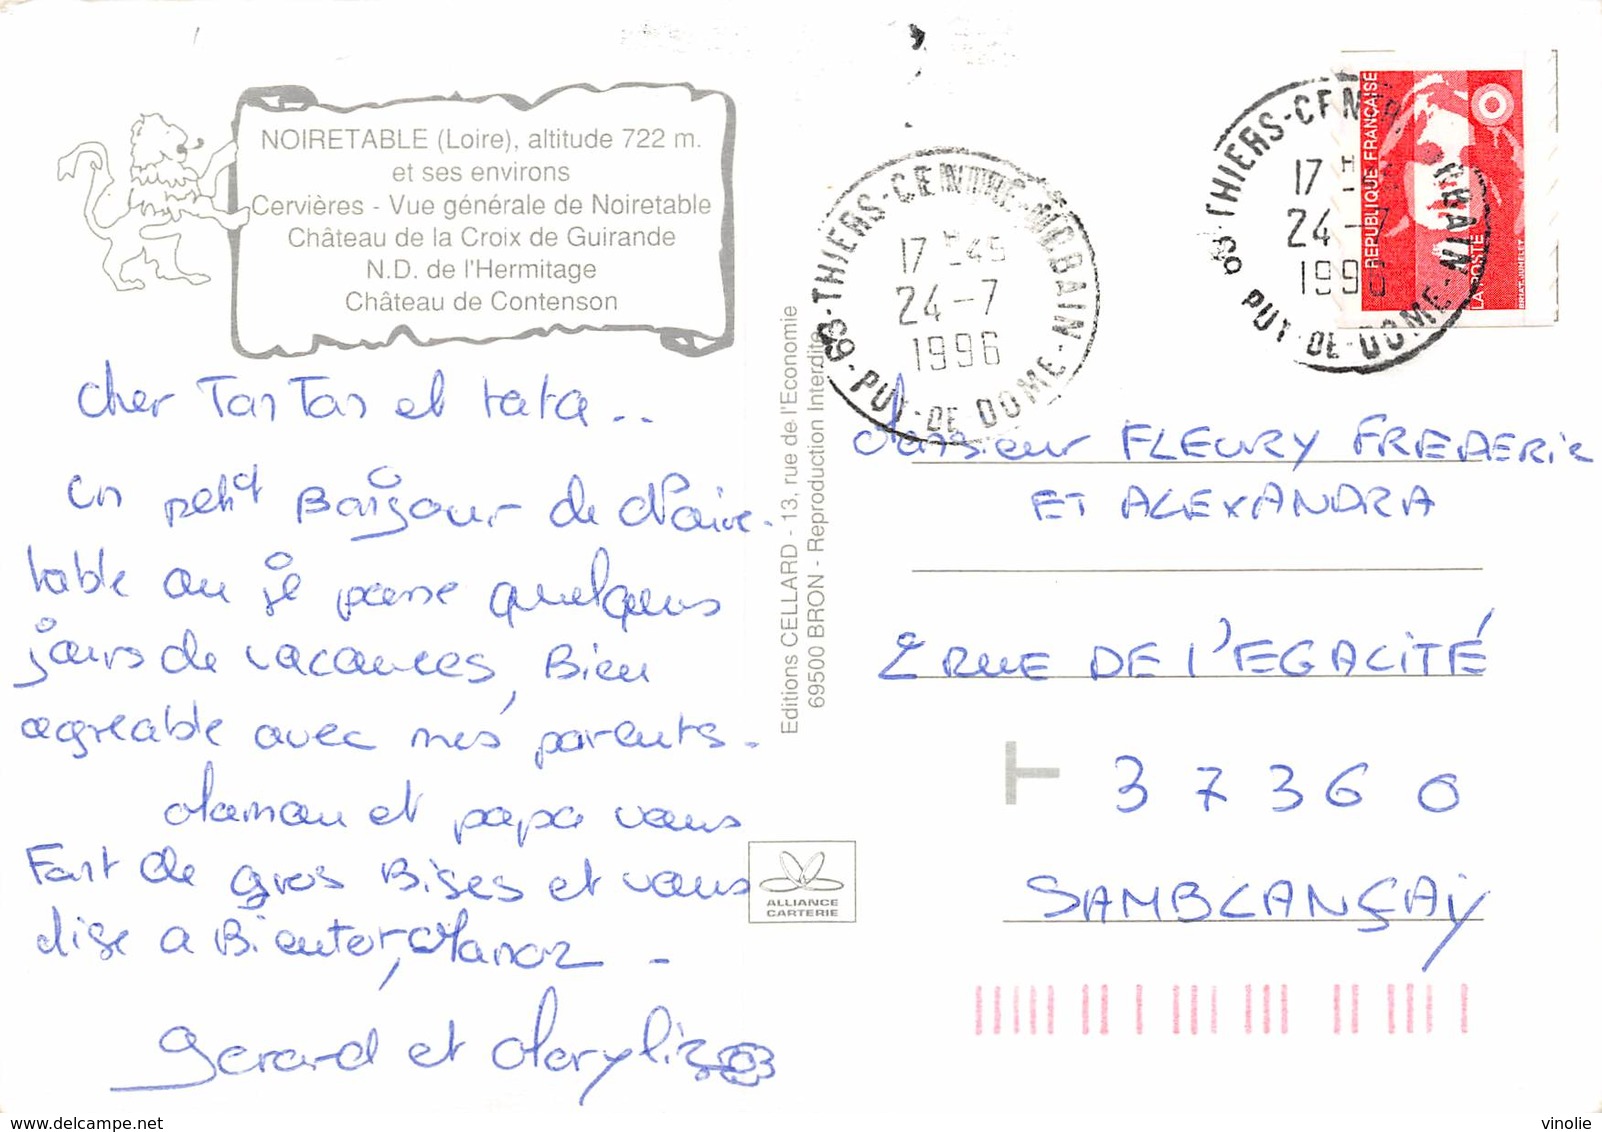 NOIRETABLE (Loire), altitude 722 m.
et ses environs
Cervières - Vue générale de Noiretable
Château de la Croix de Guirande
N.D. de l'Hermitage
Château de Contenson
cher TonTon et tata..
un petit Bonjour de Noire-
table ou je passe quelques
jours de vacances, Bien
agreable avec mes parents.
Maman et papa vous
Font de gros Bises et vous
dise a Bientot, Manon -
Gerard et Marylise
Editions CELLARD - 13, rue de l'Economie
69500 BRON - Reproduction Interdite
ALLIANCE
CARTERIE
63-THIERS-CENTRE-MOBAIN-
17 H45
24-7
1996
PUY-DE-DOME-
63-THIERS-CENTR
17 H
24-7
1996
PUY-DE-DOME-
REPUBLIQUE FRANÇAISE
LA POSTE
BRIAT. JUMELET
Monsieur FLEURY FREDERIC
ET ALEXANDRA
2 RUE DE L'EGALITÉ
37360
SAMBLANÇAY
www.delcampe.net
vinolie